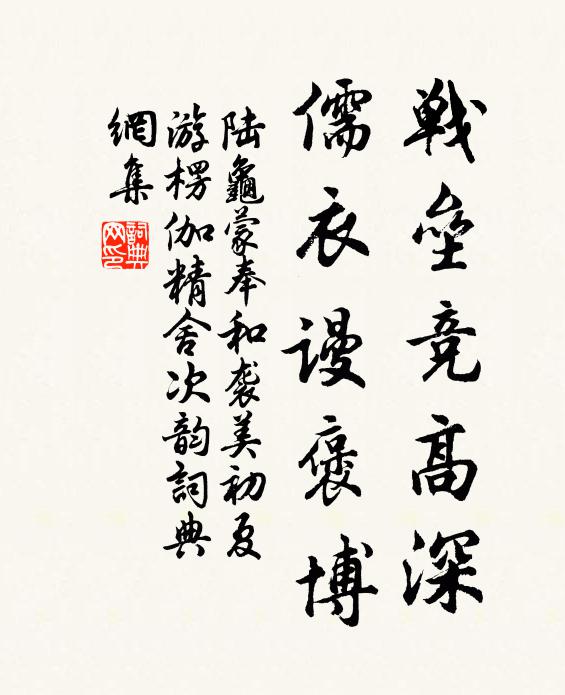 戦壘竞高深
儒衣謾褒博
陆龜蒙奉和袭美初夏
游楞伽精舍次韵詞典
網集
詞典网印